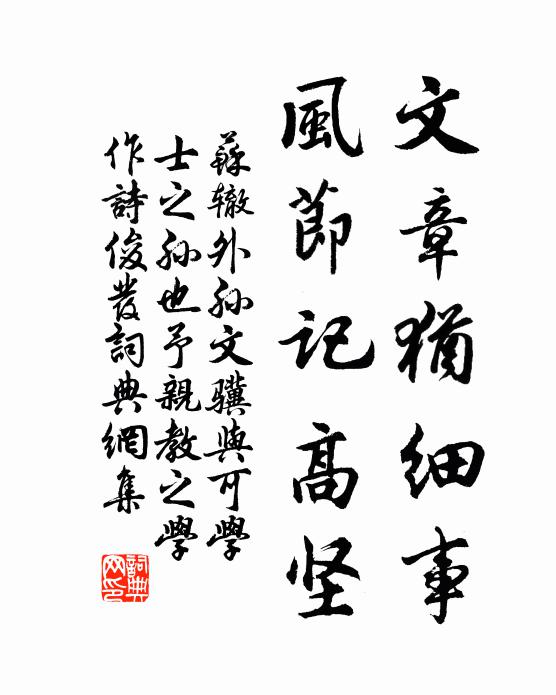 文章犹細事
風節記高坚
蘇辙外孙文骥與可學
士之孙也予親教之學
作詩俊發詞典網集
詞典
网印